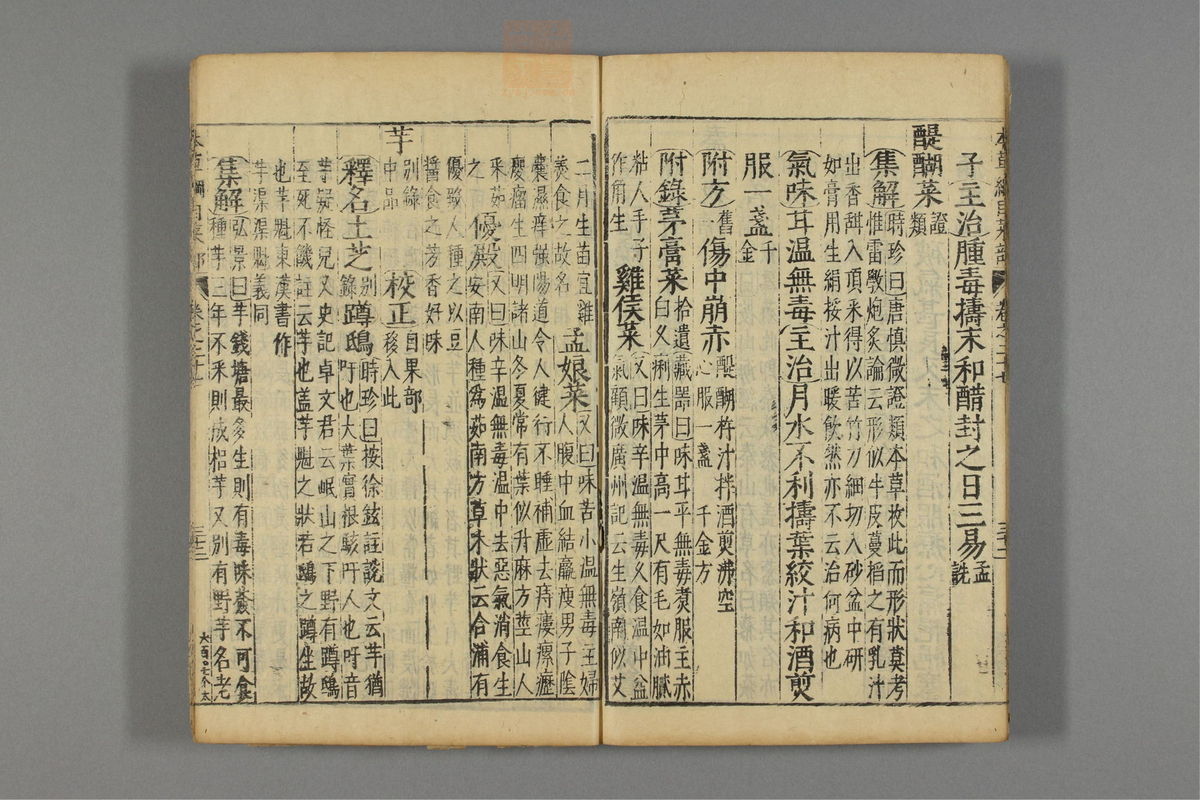 子主治腫毒擣末和醋封之日三易孟詵
醍醐菜證類
集解時珍曰唐慎微證類本草收此而形狀莫考
惟雷斆炮炙論云形似牛皮蔓搯之有乳汁
出香甜入頂采得以苦竹刀細切入砂盆中研
如膏用生絹挼汁出暖飲然亦不云治何病也
氣味甘溫無毒主治月水不利擣葉絞汁和酒煎
服一盞千金
附方舊一傷中崩赤醍醐杵汁拌酒煎沸空
心服一盞千金方
附錄茅膏菜拾遺藏器曰味甘平無毒煑服主赤
白久痢生茅中高一尺有毛如油膩
粘人手子
作角生雞侯菜又曰味辛溫無毒久食溫中益
氣顧微廣州記云生嶺南似艾
二月生苗宜雞
羮食之故名孟娘菜又曰味苦小溫無毒主婦
人腹中血結羸瘦男子陰
囊濕癢强陽道令人健行不睡補虛去痔瘻瘰癧
癭瘤生四明諸山冬夏常有葉似升麻方莖山人
采茹
之優殿又曰味辛溫無毒溫中去惡氣消食生
安南人種爲茹南方草木狀云合浦有
優殿人種之以豆
醬食之芳香好味
芋别錄
中品校正自果部
移入此
釋名土芝别錄蹲鴟時珍曰按徐鉉註說文云芋猶
吁也大葉實根駭吁人也吁音
芋疑怪皃又史記卓文君云岷山之下野有蹲鴟
至死不饑註云芋也盖芋魁之狀若鴟之蹲坐故
也芋魁東漢書作
芋渠渠魁義同
集解弘景曰芋錢塘最多生則有毒味薟不可食
種芋三年不采則成梠芋又别有野芋名老